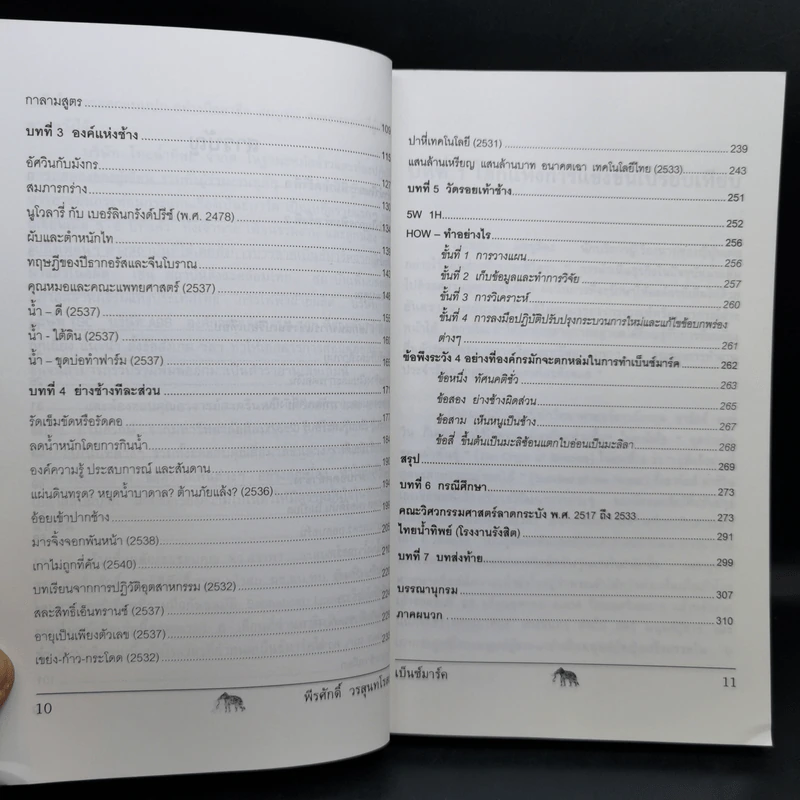 กาลามสูตร 109
บทที่ 3 องค์แห่งช้าง
อัศวินกับมังกร
สมภารกร่าง
นูโวลารี่ กับ เบอร์ลินกรังด์ปรีซ์ (พ.ศ. 2478)
ผับและตำหนักไท
ทฤษฎีของปีธากอรัสและจีนโบราณ
คุณหมอและคณะแพทยศาสตร์ (2537)
น้ำ – ดี (2537)
น้ำ - ใต้ดิน (2537)
น้ำ – ขุดบ่อทำฟาร์ม (2537)
บทที่ 4 ย่างช้างทีละส่วน
รัดเข็มขัดหรือรัดคอ
ลดน้ำหนักโดยการกินน้ำ
องค์ความรู้ ประสบการณ์ และสันดาน
แผ่นดินทรุด? หยุดน้ำบาดาล? ต้านภัยแล้ง? (2536)
อ้อยเข้าปากช้าง
มารจิ้งจอกพันหน้า (2538)
เกาไม่ถูกที่คัน (2540)
บทเรียนจากการปฏิวัติอุตสาหกรรม (2532)
สละสิทธิ์เอ็นทรานซ์ (2537)
อายุเป็นเพียงตัวเลข (2537)
เขย่ง-ก้าว-กระโดด (2532)
10 พีรศักดิ์ วรสุนทโรสถ
ปาหี่เทคโนโลยี (2531) 239
แสนล้านเหรียญ แสนล้านบาท อนาคตเฉา เทคโนโลยีไทย (2533) 243
บทที่ 5 วัดรอยเท้าช้าง 251
5W 1H 252
HOW – ทำอย่างไร 256
ขั้นที่ 1 การวางแผน 256
ขั้นที่ 2 เก็บข้อมูลและทำการวิจัย 257
ขั้นที่ 3 การวิเคราะห์ 260
ขั้นที่ 4 การลงมือปฏิบัติปรับปรุงกระบวนการใหม่และแก้ไขข้อบกพร่อง
ต่างๆ 261
ข้อพึงระวัง 4 อย่างที่องค์กรมักจะตกหล่มในการทำเบ็นช์มาร์ค 262
ข้อหนึ่ง ทัศนคติชั่ว 263
ข้อสอง ย่างช้างผิดส่วน 265
ข้อสาม เห็นหนูเป็นช้าง 267
ข้อสี่ ขึ้นต้นเป็นมะลิซ้อนแตกใบอ่อนเป็นมะลิลา 268
สรุป 269
บทที่ 6 กรณีศึกษา 273
คณะวิศวกรรมศาสตร์ลาดกระบัง พ.ศ. 2517 ถึง 2533 273
ไทยน้ำทิพย์ (โรงงานรังสิต) 291
บทที่ 7 บทส่งท้าย 299
บรรณานุกรม 307
ภาคผนวก 310
เบ็นช์มาร์ค 11